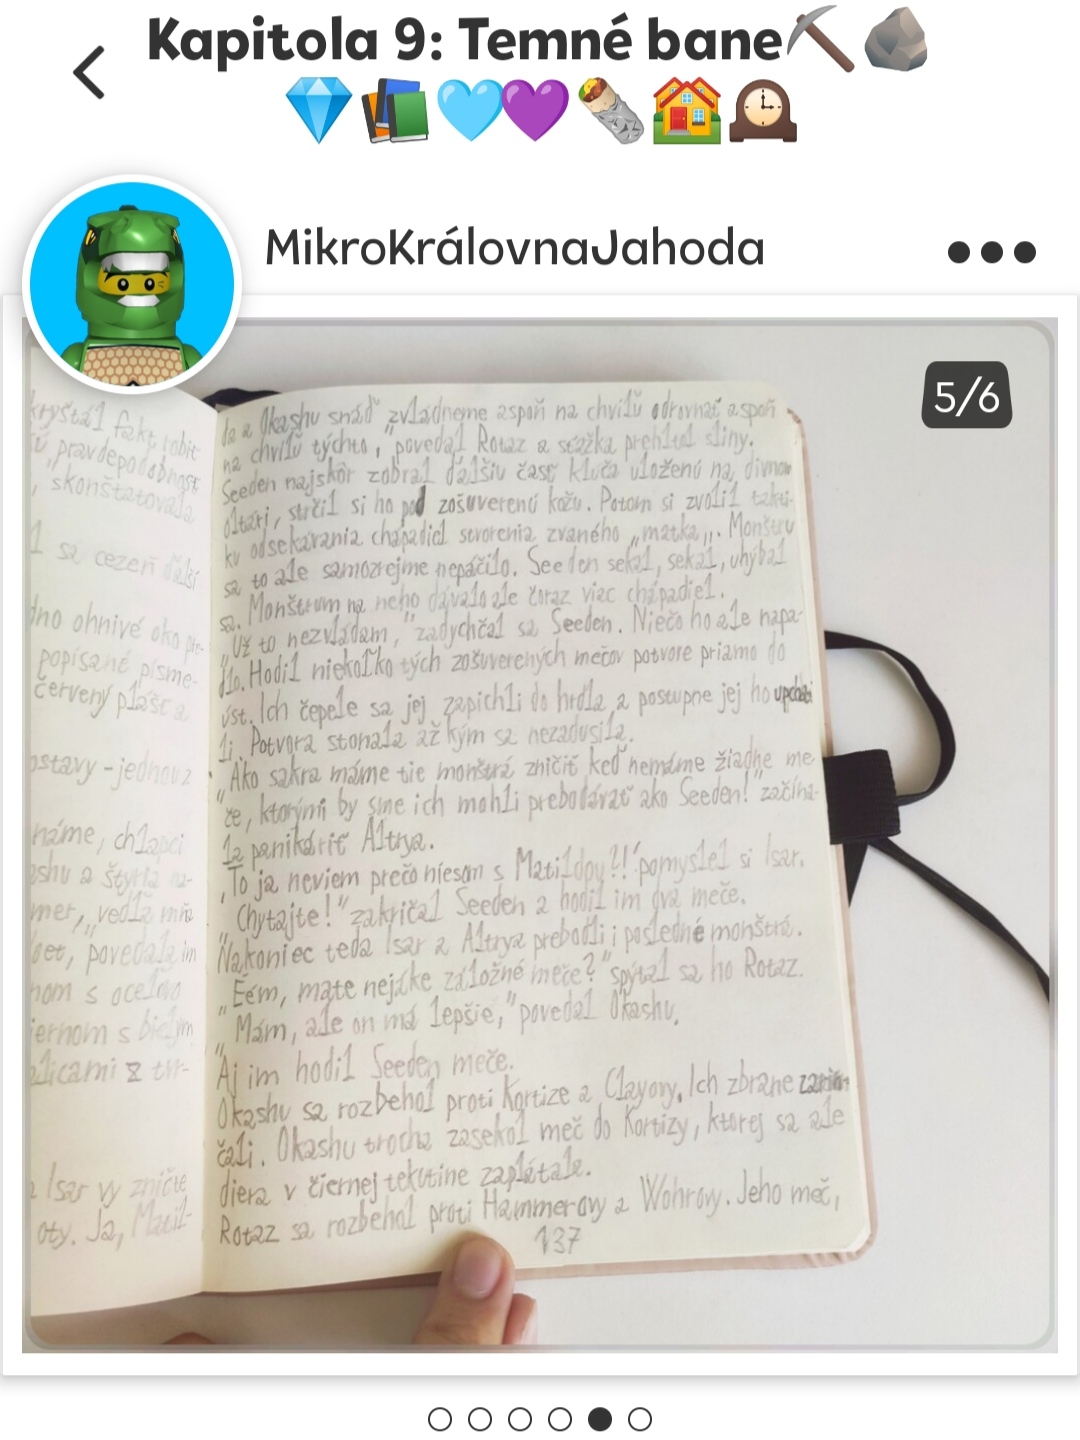 Kapitola 9: Temné bane
MikroKrálovnaJahoda
5/6
kryštál fakt robit
pravdepodobnost
, skonštatovala
sa cezeň ďalší
dno ohnivé oko pre-
popísané písme-
červený plášť a
ostavy - jednou z
náme, chlapci
ashu a štyria na-
mer," vedľa mňa
set, povedala im
nom s oceľovo
iernom s bielym
alicami z tvr-
a Isar vy zničte
oty. Ja, Matil-
da a Okashu snáď zvládneme aspoň na chvíľu odrovnať aspoň
na chvíľu týchto," povedal Rotaz a sťažka prehltol sliny.
Seeden najskôr zobral ďalšiu časť kľúča uloženú na divnom
oltári, strčil si ho pod zošuverenú kožu. Potom si zvolil takti-
ku odsekávania chápadiel stvorenia zvaného „matka„. Monštru
sa to ale samozrejme nepáčilo. Seeden sekal, sekal, uhýbal
sa. Monštrum na neho dávalo ale čoraz viac chápadiel.
„Už to nezvládam," zadychčal sa Seeden. Niečo ho ale napa-
dlo. Hodil niekoľko tých zošuverených mečov potvore priamo do
úst. Ich čepele sa jej zapichli do hrdla a postupne jej ho upcha-
li. Potvora stonala až kým sa nezadusila.
„Ako sakra máme tie monštrá zničiť keď nemáme žiadne me-
če, ktorými by sme ich mohli prebodávať ako Seeden!" začína-
la panikáriť Altrya.
‚To ja neviem prečo niesom s Matildou?!' pomyslel si Isar.
„Chytajte!" zakričal Seeden a hodil im dva meče.
Nakoniec teda Isar a Altrya prebodli i posledné monštrá.
„Eém, mate nejáke záložné meče?" spýtal sa ho Rotaz.
„Mám, ale on má lepšie," povedal Okashu.
Aj im hodil Seeden meče.
Okashu sa rozbehol proti Kortize a Clayovy. Ich zbrane zarin-
čali. Okashu trocha zasekol meč do Kortizy, ktorej sa ale
diera v čiernej tekutine zaplátala.
Rotaz sa rozbehol proti Hammerovy a Wohrovy. Jeho meč,
137